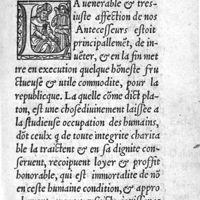 LA venerable & tres-
iuste affection de nos
Antecesseurs estoit
principallemẽt, de in-
uẽter, & en la fin met
tre en execution quelque hõneste fru
ctueuse & utile commodite, pour la
republicque. Laquelle come dict pla-
ton, est une chose diuinement laissée a
la studieuse occupation des humains,
dõt ceulx q̃ de toute integrite charita
ble la traictent & en sa dignite con-
seruent, recoipuent loyer & proffit
honorable, qui est immortalite de nõ
en ceste humaine condition, & appro